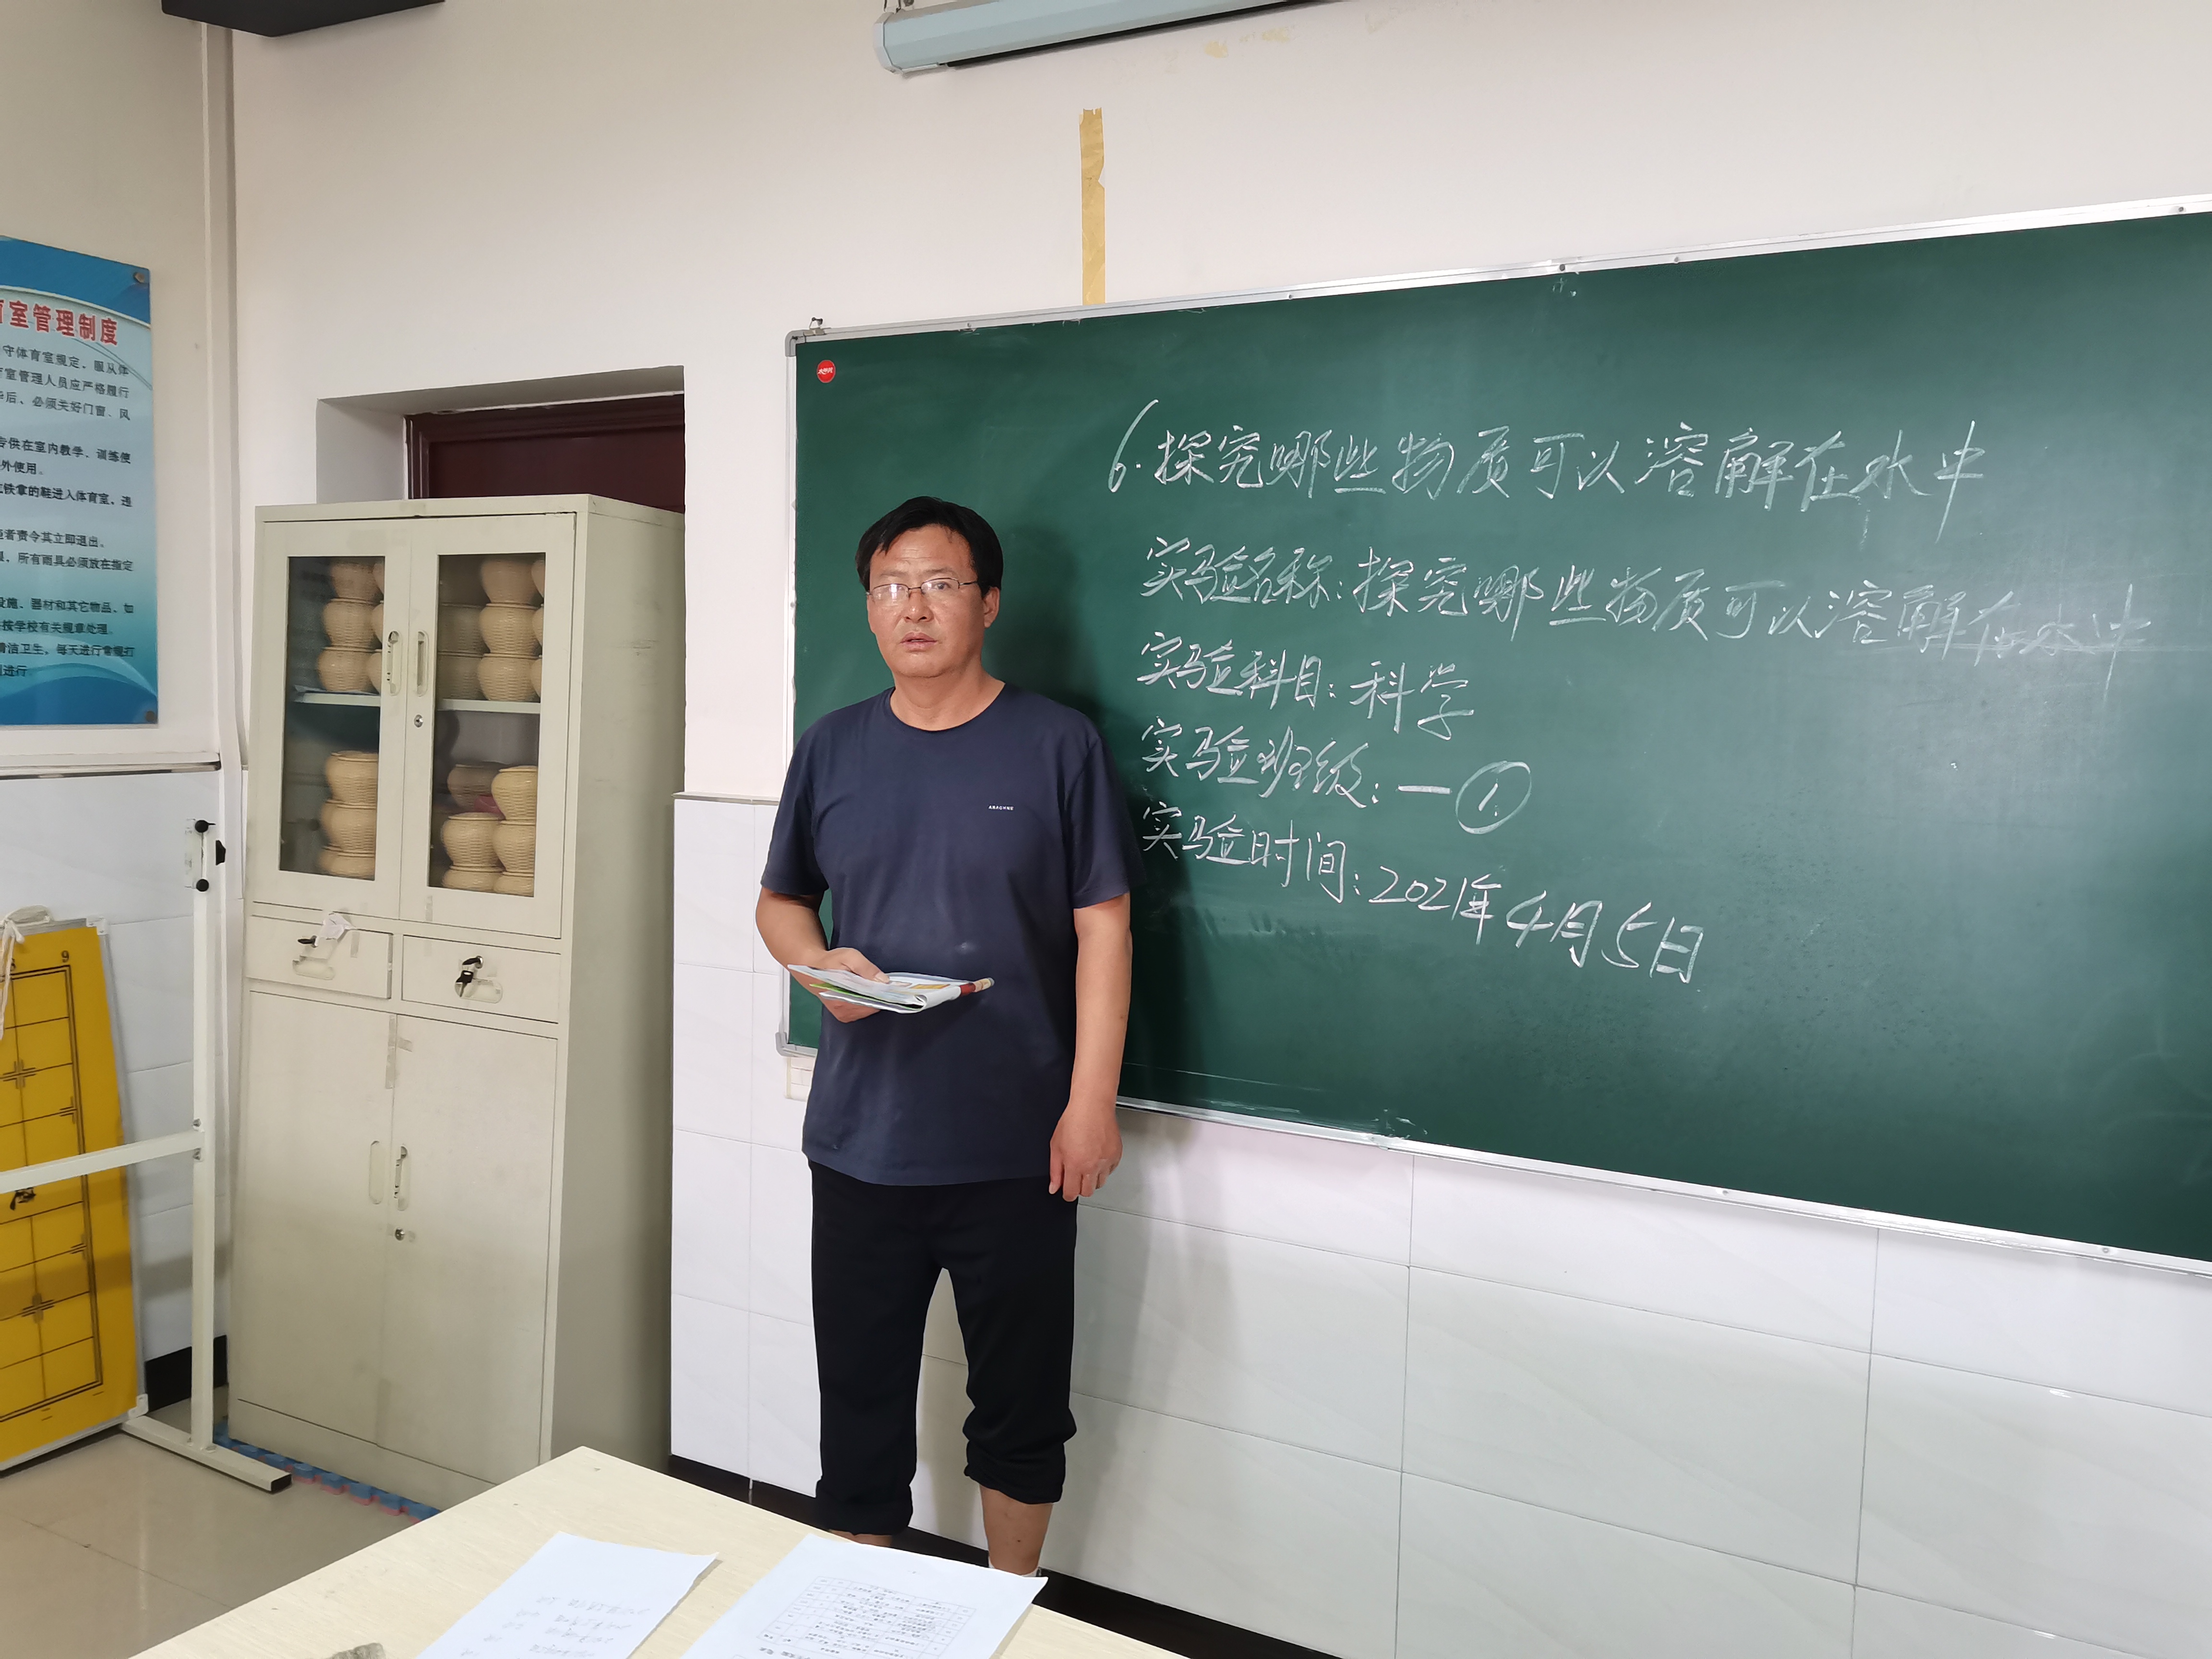 育室管理制度
守体育室规定、服从体
育室管理人员应严格履行
后、必须关好门窗、风
专供在室内教学、训练使
外使用。
铁拿的鞋进入体育室，违
者责令其立即退出。
所有雨具必须放在指定
设施、器材和其它物品，如
按学校有关规章处理。
清洁卫生，每天进行常规打
进行
6.探究哪些物质可以溶解在水中
实验名称:探究哪些物质可以溶解在水中
实验科目:科学
实验班级:一①
实验时间:2021年4月5日
ABACHNE
9